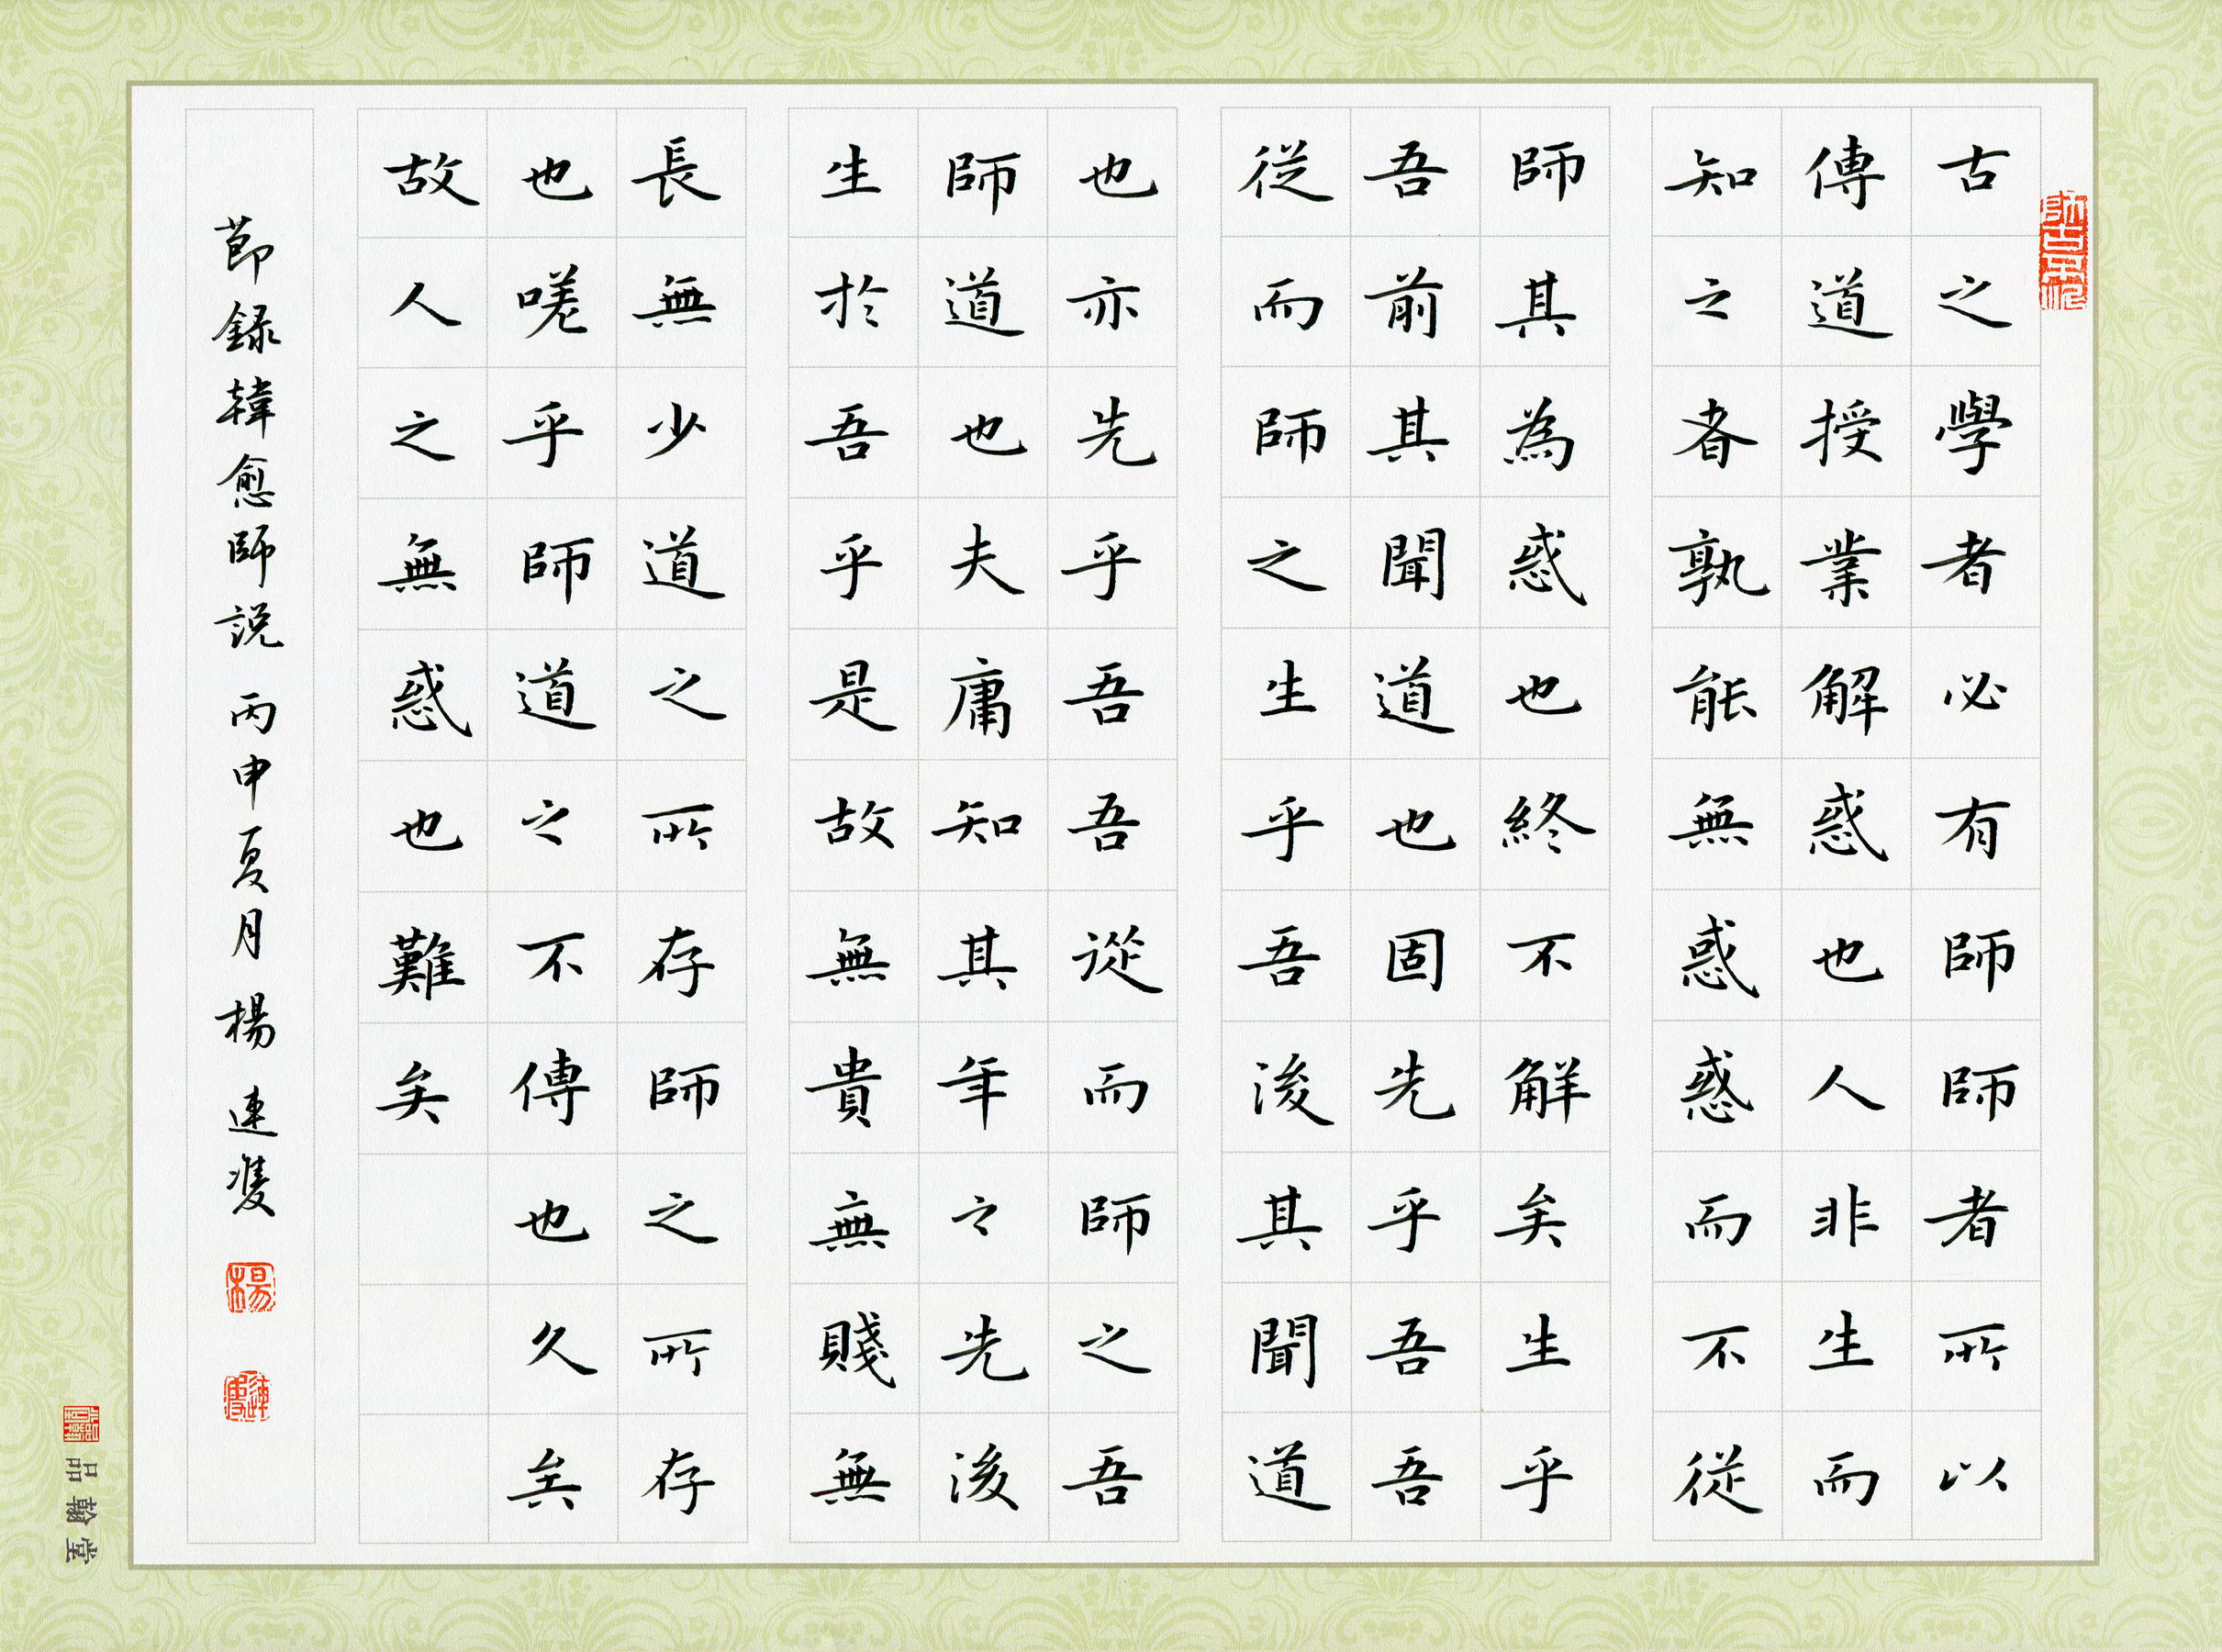 古之學者必有師師者所以
傳道授業解惑也人非生而
知之者孰能無惑惑而不從
師其為惑也終不解矣生乎
吾前其聞道也固先乎吾吾
從而師之生乎吾後其聞道
也亦先乎吾吾從而師之吾
師道也夫庸知其年之先後
生於吾乎是故無貴無賤無
長少道之所存師之所存
也嗟乎師道之不傳也久矣
故人之無惑也難矣
節録韓愈師説 丙申夏月 楊連雙
楊
品翰堂